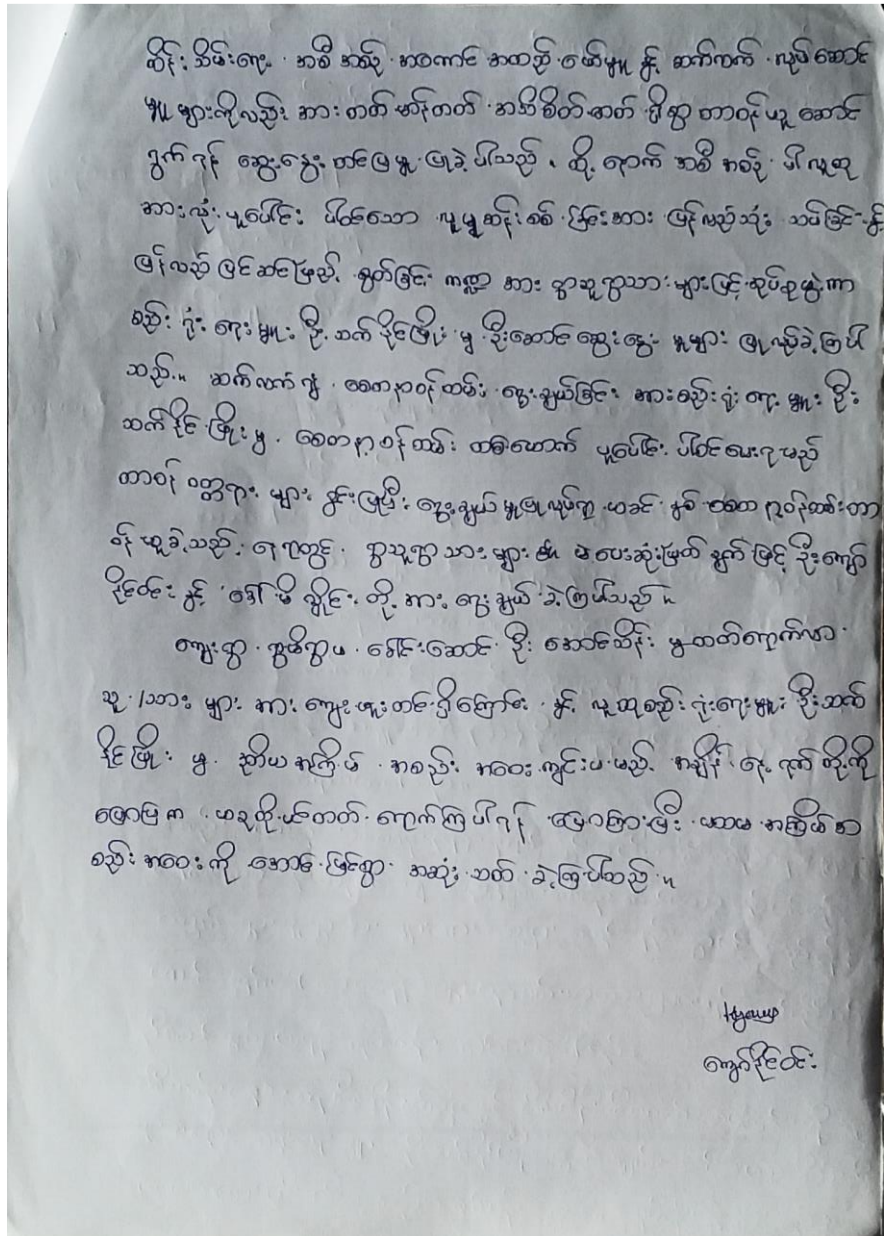 ထိန်းသိမ်းရေး အစီအစဉ် အကောင်အထည်ဖော်မှု နှင့် ဆက်လက် လုပ်ဆောင်
မှု များကိုလည်း အားတက် မာန်တက် အသိစိတ်ဓာတ် ရှိစွာ တာဝန်ယူ ဆောင်
ရွက် ရန် ဆွေးနွေး တင်ပြမှု ပြုခဲ့ ပါသည်။ ထို့နောက် အစီအစဉ် ပါ လူထု
အားလုံး ပူပေါင်း ပါဝင်သော လူမှုဆန်းစစ် ခြင်းအား ပြန်လည်သုံး သပ်ခြင်း နှင့်
ပြန်လည် ပြင်ဆင်ဖြည့် စွက်ခြင်း ကဏ္ဍ အား ရွာသူရွာသား များဖြင့် အုပ်စုဖွဲ့ကာ
စည်း ရုံး ရေး မှူး ဦး သက်နိုင်ဖြိုး မှ ဦးဆောင် ဆွေးနွေး မှုများ ပြုလုပ်ခဲ့ကြပါ
သည်။ ဆက်လက်၍ စေတနာ့ဝန်ထမ်း ရွေးချယ်ခြင်း အားစည်းရုံး ရေး မှူး ဦး
သက်နိုင် ဖြိုး မှ စေတနာ့ဝန်ထမ်း တစ်ယောက် ပူပေါင်း ပါဝင်ပေးရမည့်
တာဝန် ဝတ္တရား များ ရှင်းပြပြီး ရွေးချယ် မှုပြုလုပ်ရာ ယခင် နှစ် စေတနာ့ဝန်ထမ်းတာ
ဝန် ယူခဲ့သည့် နေရာတွင် ရွာသူရွာသား များ မဲပေးဆုံးဖြတ် ချက် ဖြင့် ဦးကျော်
နိုင်ဝင်း နှင့် ဒေါ်မိ လှိုင်း တို့ အား ရွေးချယ် ခဲ့ကြပါသည်။
ကျေးရွာ ရွာမိရွာဖ ခေါင်းဆောင် ဦး အောင်သိန်း မှ တက်ရောက်လာ
သူ /သား များ အား ကျေးဇူးတင်ရှိကြောင်း နှင့် လူထုစည်း ရုံးရေးမှူး ဦးသက်
နိုင်ဖြိုး မှ ဒုတိယအကြိမ် အစည်း အဝေး ကျင်းပ မည့် အချိန် နေ့ ရက် တို့ကို
ပြောပြကာ ယခုထိုပင်တက် ရောက်ကြပါရန် ပြောကြားပြီး ပထမ အကြိမ် အ
စည်း အဝေး ကို အောင် မြင်စွာ အဆုံး သတ် ခဲ့ကြပါသည်။
ကျော်နိုင်ဝင်း